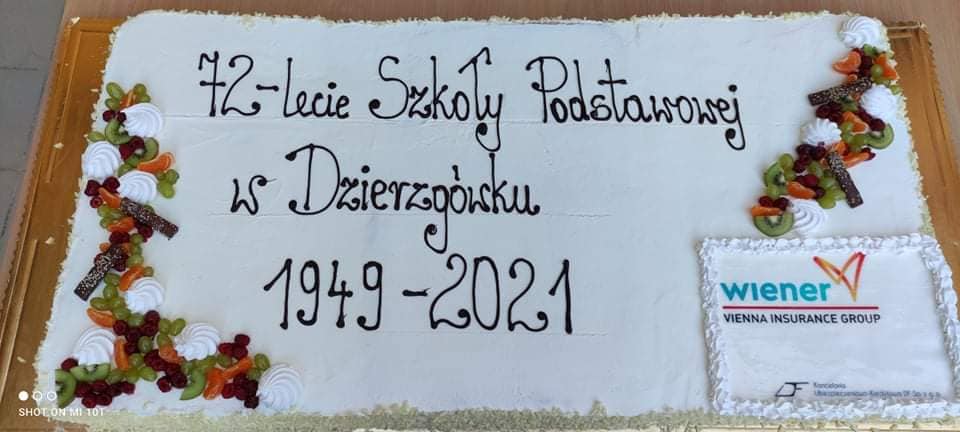 72-lecie Szkoły Podstawowej
w Dzierzgówku
1949-2021
wiener
VIENNA INSURANCE GROUP
Kancelaria
SHOT ON MI 10T